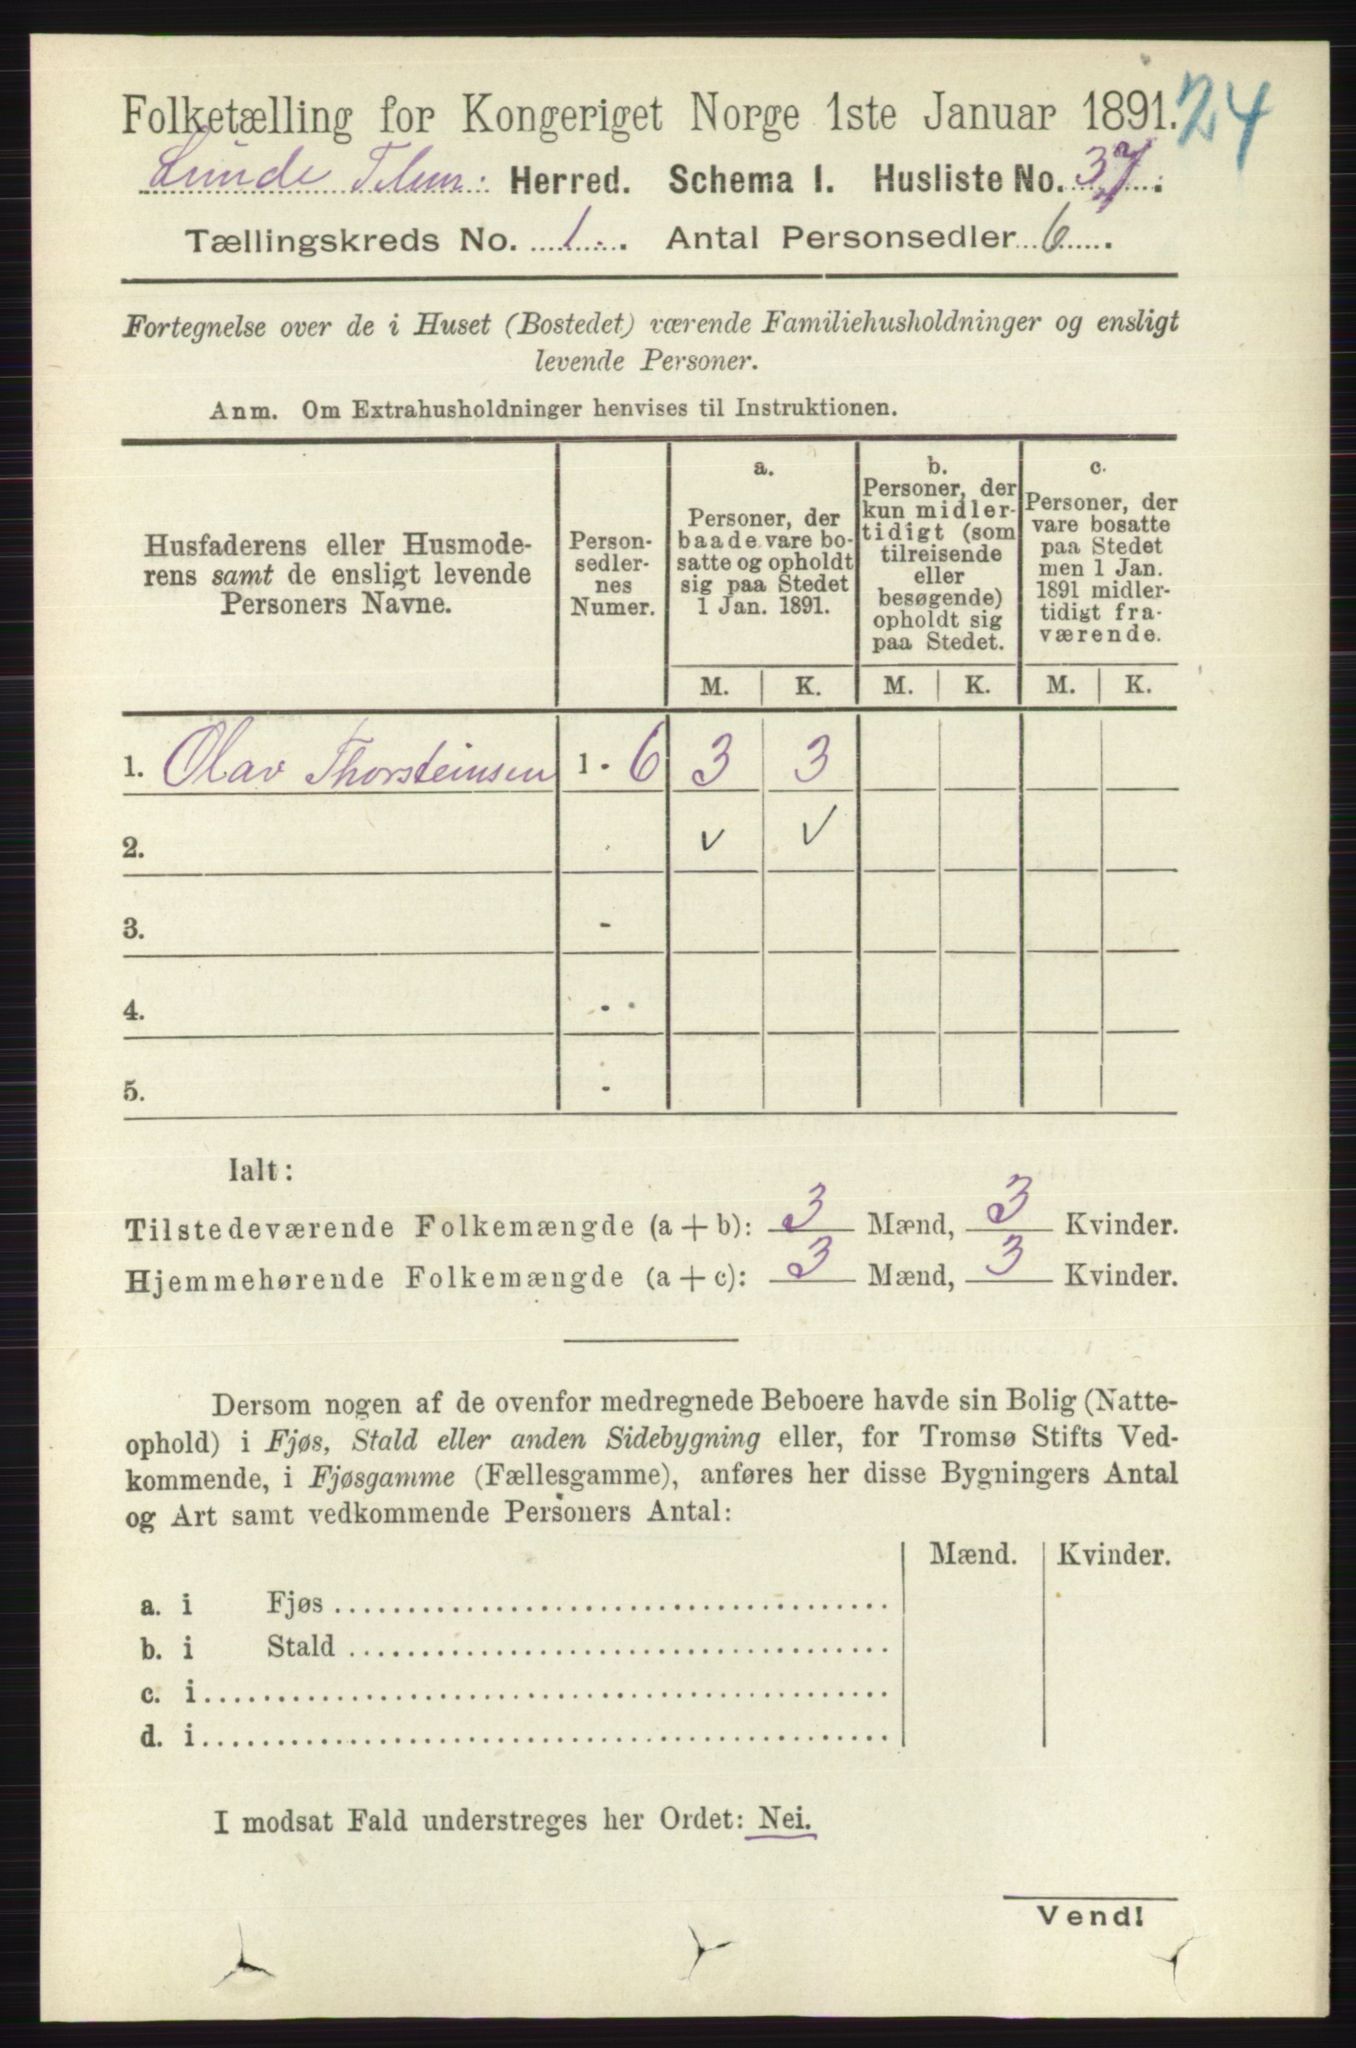 Folketælling for Kongeriget Norge 1ste Januar 1891. 24
Lunde Telem. Herred. Schema I. Husliste No. 37.
Tællingskreds No. 1. Antal Personsedler 6.
Fortegnelse over de i Huset (Bostedet) værende Familiehusholdninger og ensligt
levende Personer.
Anm. Om Extrahusholdninger henvises til Instruktionen.
Husfaderens eller Husmode-
rens samt de ensligt levende
Personers Navne.
Person-
sedler-
nes
Numer.
a.
Personer, der
baade vare bo-
satte og opholdt
sig paa Stedet
1 Jan. 1891.
b.
Personer, der
kun midler-
tidigt (som
tilreisende
eller
besøgende)
opholdt sig
paa Stedet.
c.
Personer, der
vare bosatte
paa Stedet
men 1 Jan.
1891 midler-
tidigt fra-
værende.
M. K. M. K. M. K.
1. Olav Thorsteinsen 1 - 6 3 3
2. ✓ ✓
3. -
4. -
5. -
Ialt:
Tilstedeværende Folkemængde (a + b): 3 Mænd, 3 Kvinder.
Hjemmehørende Folkemængde (a + c): 3 Mænd, 3 Kvinder.
Dersom nogen af de ovenfor medregnede Beboere havde sin Bolig (Natte-
ophold) i Fjøs, Stald eller anden Sidebygning eller, for Tromsø Stifts Ved-
kommende, i Fjøsgamme (Fællesgamme), anføres her disse Bygningers Antal
og Art samt vedkommende Personers Antal:
Mænd. Kvinder.
a. i Fjøs
b. i Stald
c. i
d. i
I modsat Fald understreges her Ordet: Nei.
Vend!